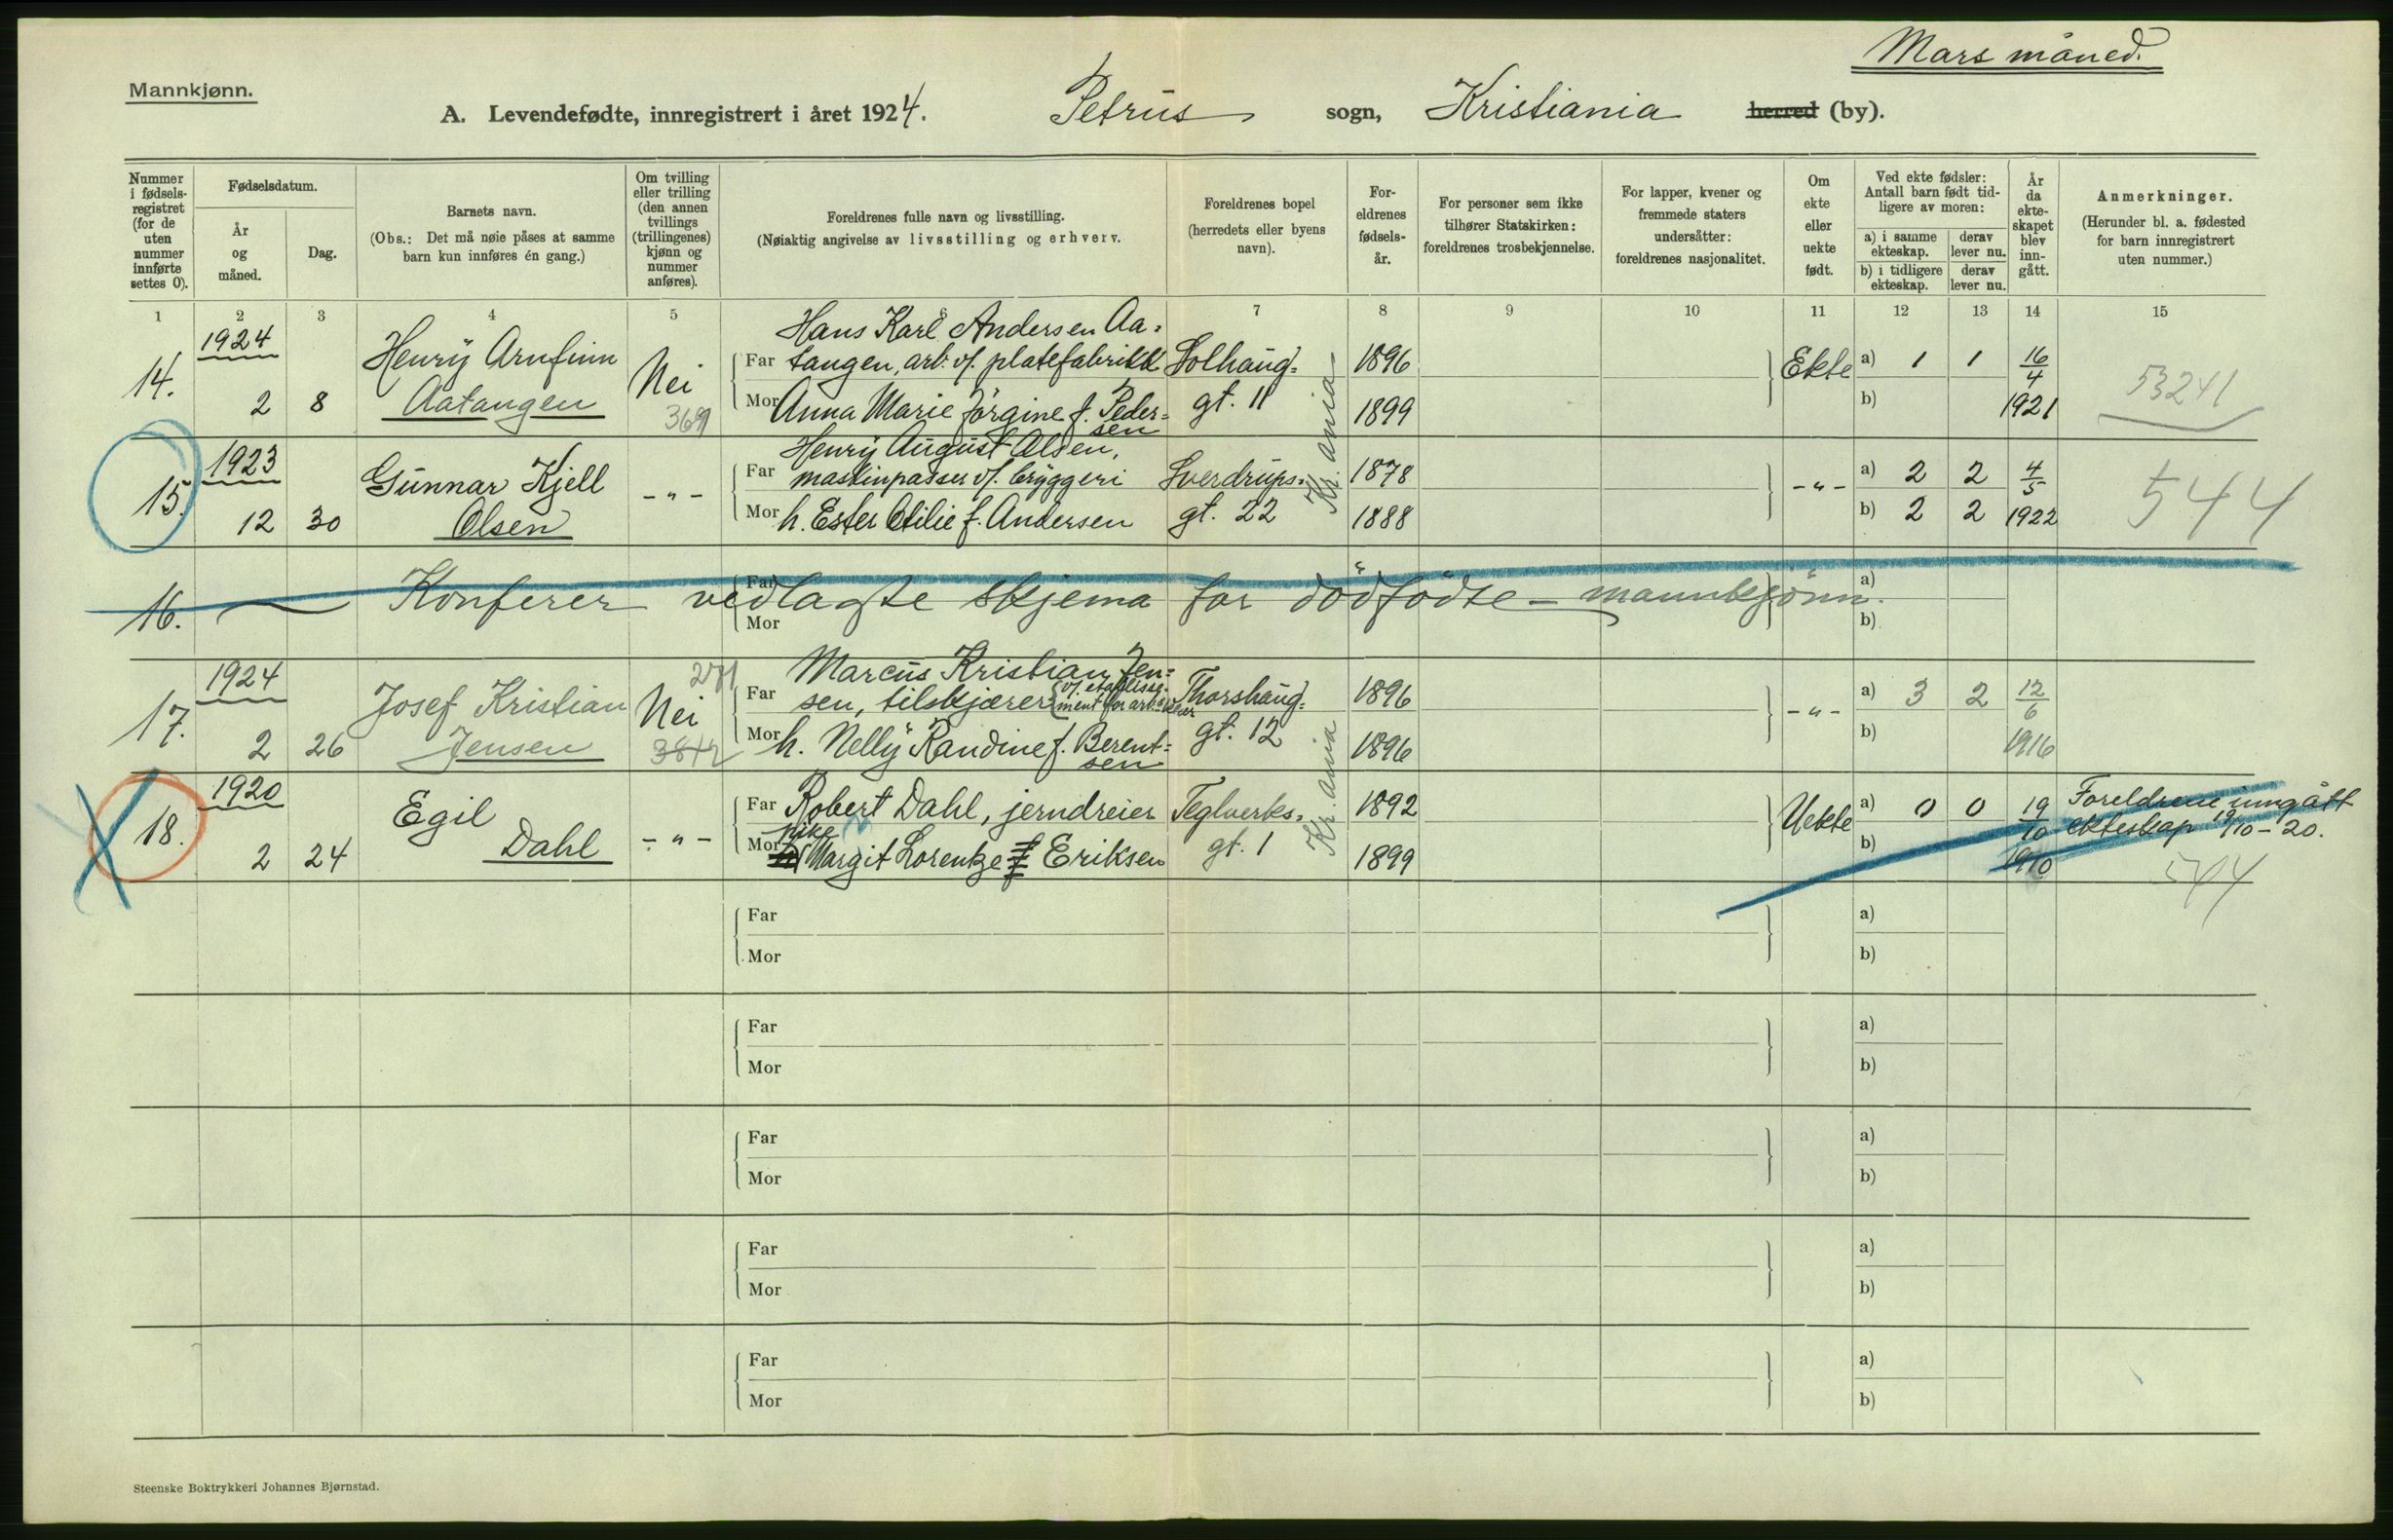 Mars måned.
Mannkjønn.
A. Levendefødte, innregistrert i året 1924. Petrus sogn, Kristiania herred (by).
Nummer i fødsels-registret (for de uten nummer innførte settes 0).
Fødselsdatum.
År og måned.
Dag.
Barnets navn.
(Obs.: Det må nøie påses at samme barn kun innføres én gang.)
Om tvilling eller trilling (den annen tvillings (trillingenes) kjønn og nummer anføres).
Foreldrenes fulle navn og livsstilling.
(Nøiaktig angivelse av livsstilling og erhverv.
Foreldrenes bopel (herredets eller byens navn).
For-eldrenes fødsels-år.
For personer sem ikke tilhører Statskirken: foreldrenes trosbekjennelse.
For lapper, kvener og fremmede staters undersåtter: foreldrenes nasjonalitet.
Om ekte eller uekte født.
Ved ekte fødsler: Antall barn født tid-ligere av moren:
a) i samme ekteskap.
derav lever nu.
b) i tidligere ekteskap.
derav lever nu.
År da ekte-skapet blev inn-gått.
Anmerkninger.
(Herunder bl. a. fødested for barn innregistrert uten nummer.)
1 2 3 4 5 7 8 9 10 11 12 13 14 15
14. 1924 2 8
Henry Arnfinn
Aatangen
Nei
369
Hans Karl Andersen Aa-
Far tangen, arb. v/. platefabrikk
Mor Anna Marie Jörgine f. Peder-
sen
Solhaug-
gt. 11
Kr. ania
1896
1899
Ekte a) 1 1 16/4
b) 1921
53241
15. 1923 12 30
Gunnar Kjell
Olsen
-"-
Henry August Olsen,
Far maskinpasser v/. bryggeri
Mor h. Ester Otilie f. Andersen
Sverdrups-
gt. 22
1878
1888
-"- a) 2 2 4/5
b) 2 2 1922
544
16. Konferer vedlagte skjema for dödfödte - mannkjönn.
Far
Mor
a)
b)
17. 1924 2 26
Josef Kristian
Jensen
271
Nei
Marcus Kristian Jen-
Far sen, tilskjærer
Mor h. Nelly Randine f. Berent-
sen
Thorshaug-
gt. 12
Kr. ania
1896
1896
-"- a) 3 2 12/6
b) 1916
18. 1920 2 24
Egil
Dahl
-"-
Far Robert Dahl, jerndreier
pike
Mor Margit Lorentze f. Eriksen
Teglverks-
gt. 1
1892
1899
Uekte a) 0 0 19/10
b)
Foreldrene inngått
ekteskap 19/10-20.
544
Far a)
Mor b)
Far a)
Mor b)
Far a)
Mor b)
Far a)
Mor b)
Far a)
Mor b)
Steenske Boktrykkeri Johannes Bjørnstad.